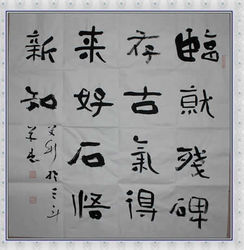 臨就殘碑
存古氣得
来好石悟
新知